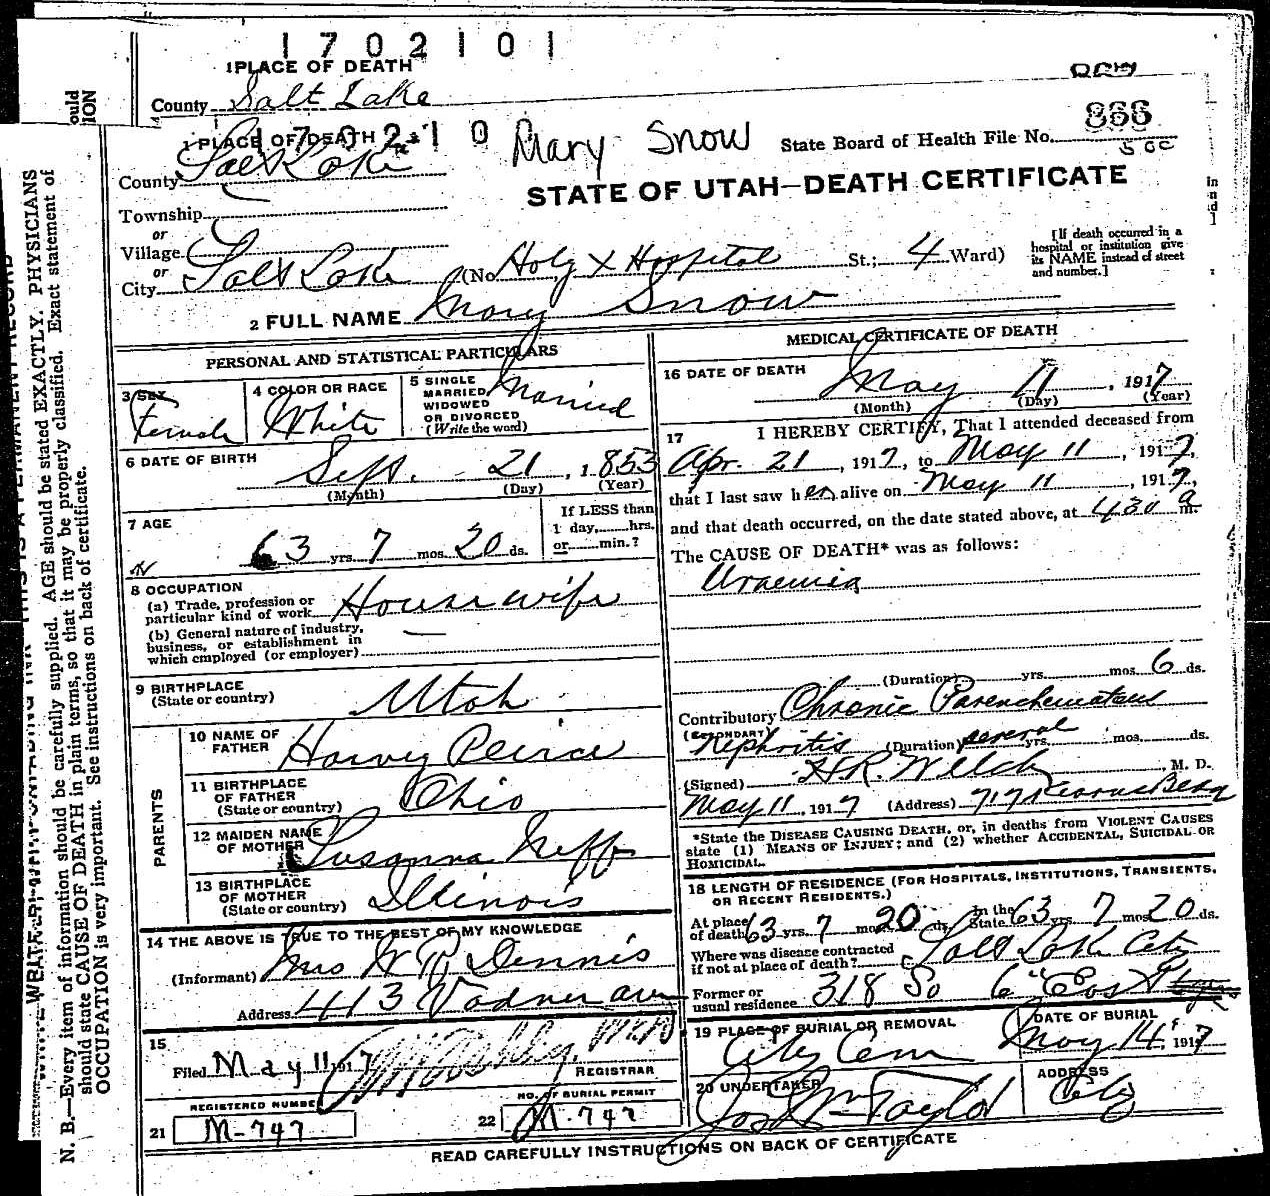 1702101
1 PLACE OF DEATH
County Salt Lake
1 PLACE OF DEATH
Mary Snow
State Board of Health File No. 866
County Salt Lake
STATE OF UTAH—DEATH CERTIFICATE
Township
or
Village
or
City Salt Lake (No. Holy X Hospital St.; 4 Ward)
[If death occurred in a hospital or institution give its NAME instead of street and number.]
2 FULL NAME Mary Snow
PERSONAL AND STATISTICAL PARTICULARS
3 SEX Female
4 COLOR OR RACE White
5 SINGLE MARRIED, WIDOWED OR DIVORCED (Write the word) Married
6 DATE OF BIRTH Sept. 21, 1853
(Month) (Day) (Year)
7 AGE 63 yrs. 7 mos. 20 ds.
If LESS than 1 day, hrs. or min.?
8 OCCUPATION
(a) Trade, profession or particular kind of work Housewife
(b) General nature of industry, business, or establishment in which employed (or employer) —
9 BIRTHPLACE (State or country) Utah
PARENTS
10 NAME OF FATHER Harvy Peirce
11 BIRTHPLACE OF FATHER (State or country) Ohio
12 MAIDEN NAME OF MOTHER Susanna Neff
13 BIRTHPLACE OF MOTHER (State or country) Illinois
14 THE ABOVE IS TRUE TO THE BEST OF MY KNOWLEDGE
(Informant) Mrs W P Dennis
Address 413 Ave
15
Filed May 11 1917 M.D.
REGISTRAR
REGISTERED NUMBER
21 M-747
NO. OF BURIAL PERMIT
22 M-747
MEDICAL CERTIFICATE OF DEATH
16 DATE OF DEATH May 11, 1917
(Month) (Day) (Year)
17 I HEREBY CERTIFY, That I attended deceased from
Apr. 21, 1917, to May 11, 1917,
that I last saw her alive on May 11, 1917,
and that death occurred, on the date stated above, at 430 a m.
The CAUSE OF DEATH* was as follows:
Uraemia
(Duration) yrs. mos. 6 ds.
Contributory Chronic Parenchematous
(SECONDARY) Nephritis (Duration) several yrs. mos. ds.
(Signed) H.R. Welch, M. D.
May 11, 1917 (Address) 717 Kearns Bldg
*State the DISEASE CAUSING DEATH, or, in deaths from VIOLENT CAUSES
state (1) MEANS OF INJURY; and (2) whether ACCIDENTAL, SUICIDAL OR
HOMICIDAL.
18 LENGTH OF RESIDENCE (FOR HOSPITALS, INSTITUTIONS, TRANSIENTS,
OR RECENT RESIDENTS.)
At place of death 63 yrs. 7 mos. 20 ds. In the State 63 yrs. 7 mos. 20 ds.
Where was disease contracted if not at place of death? Salt Lake City
Former or usual residence 318 So 6" East
19 PLACE OF BURIAL OR REMOVAL City Cem
DATE OF BURIAL May 14, 1917
20 UNDERTAKER Jos Wm Taylor
ADDRESS City
READ CAREFULLY INSTRUCTIONS ON BACK OF CERTIFICATE
N. B.—Every item of information should be carefully supplied. AGE should be stated EXACTLY. PHYSICIANS
should state CAUSE OF DEATH in plain terms, so that it may be properly classified. Exact statement of
OCCUPATION is very important. See instructions on back of certificate.